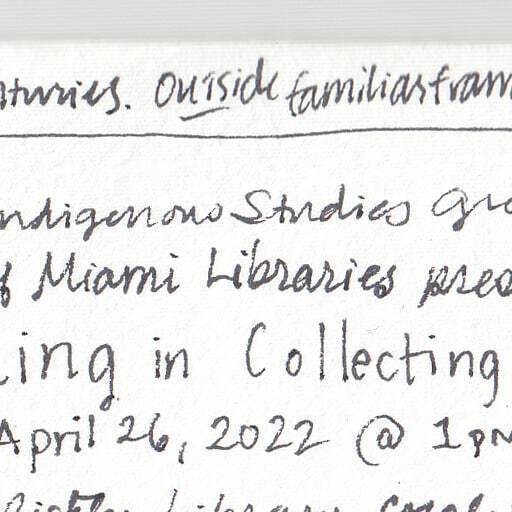 turies. Outside familiar fram
ndigenous Studies Gro
of Miami Libraries pres
ing in Collecting
April 26, 2022 @ 1pm
Library